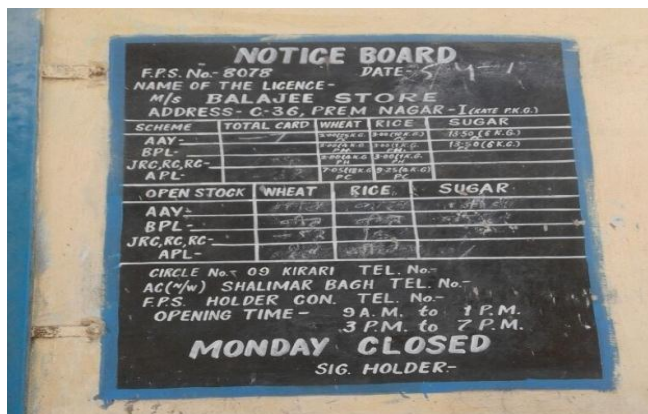 NOTICE BOARD
F.P.S. No.- 8078 DATE-
NAME OF THE LICENCE-
M/s BALAJEE STORE
ADDRESS- C-36, PREM NAGAR-I (KATE P.K.G.)
SCHEME TOTAL CARD WHEAT RICE SUGAR
AAY- 13.50 (6 K.G.)
BPL- 13.50 (6 K.G.)
JRC, RC, RC-
APL-
OPEN STOCK WHEAT RICE SUGAR
AAY-
BPL-
JRC, RC, RC-
APL-
CIRCLE No.- 09 KIRARI TEL. No.-
AC(N/W) SHALIMAR BAGH TEL. No.-
F.P.S. HOLDER CON. TEL. No.-
OPENING TIME- 9 A.M. to 1 P.M.
3 P.M. to 7 P.M.
MONDAY CLOSED
SIG. HOLDER-